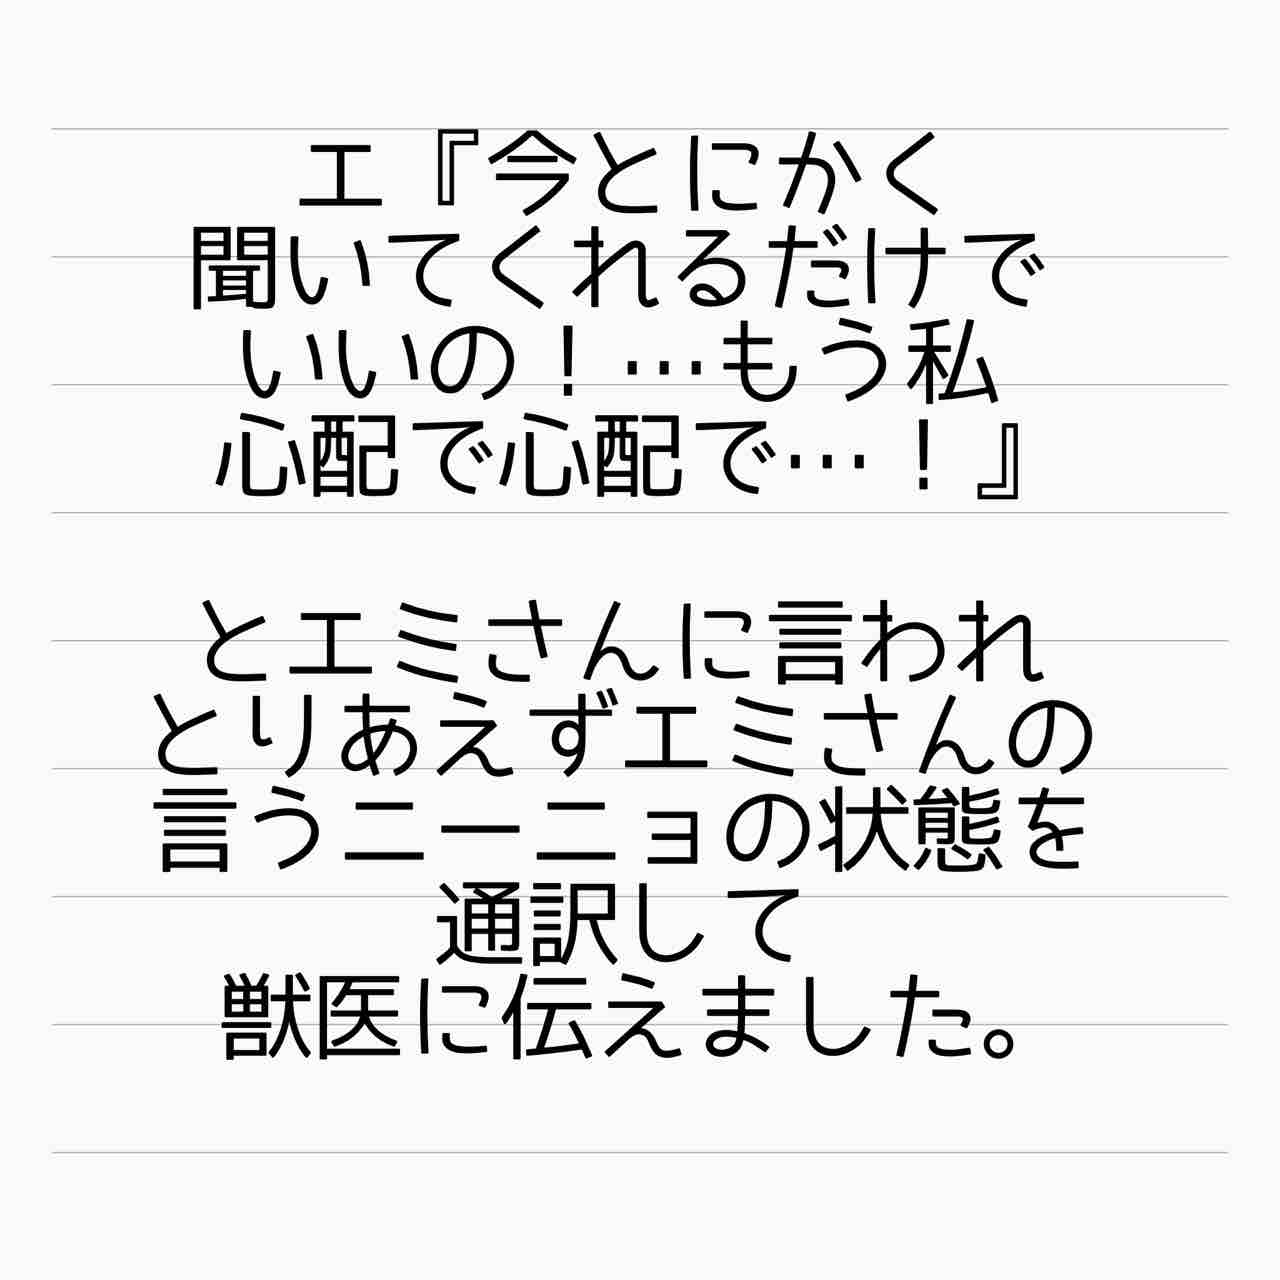 エ『今とにかく
聞いてくれるだけで
いいの！…もう私
心配で心配で…！』
とエミさんに言われ
とりあえずエミさんの
言うニーニョの状態を
通訳して
獣医に伝えました。